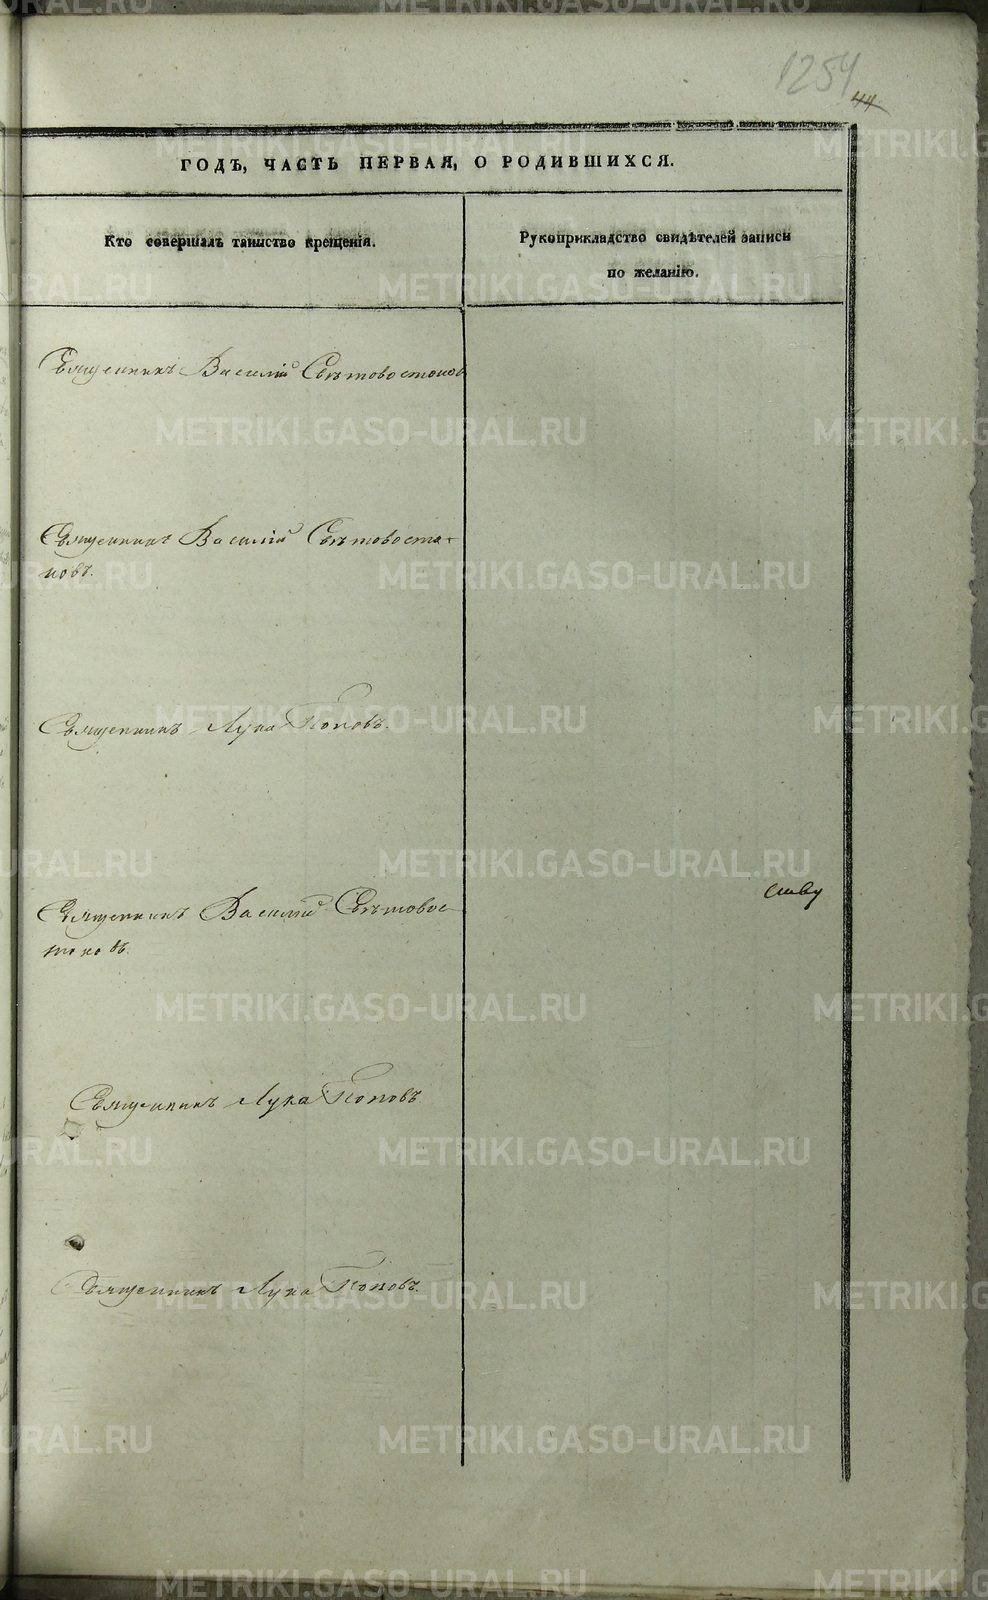 1254
44
ГОДЪ, ЧАСТЬ ПЕРВАЯ, О РОДИВШИХСЯ.
Кто совершалъ таинство крещенія.
Рукоприкладство свидѣтелей записи
по желанію.
Священникъ Василій Свѣтовостоков
Священникъ Василій Свѣтовосто-
ковъ.
Священникъ Лука Поповъ.
Священникъ Василій Свѣтовос-
токовъ.
Священникъ Лука Поповъ
Священникъ Лука Поповъ.
METRIKI.GASO-URAL.RU